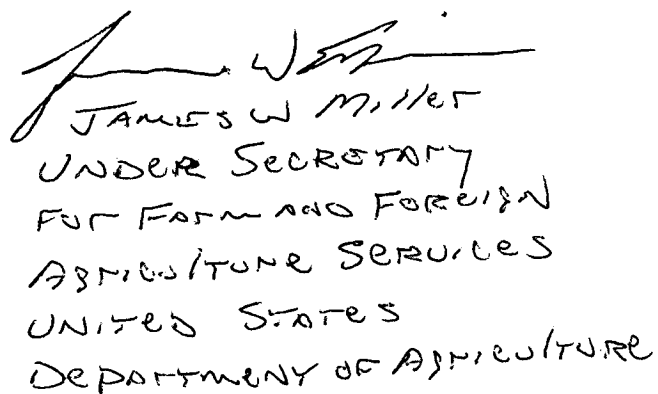 James W Miller
Under Secretary
For Farm and Foreign
Agriculture Services
United States
Department of Agriculture